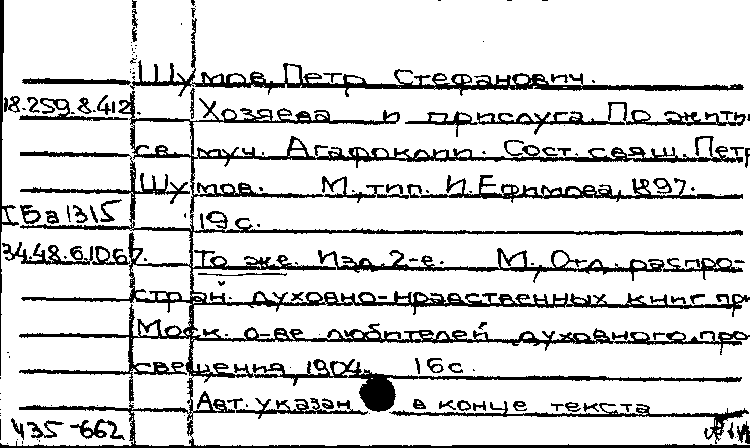 Шумов, Петр Стефанович.
18.259.8.412. Хозяева и прислуга. По житию
св. муч. Агафоклии. Сост. свящ. Петр
Шумов. М., тип. И. Ефимова, 1897.
IБа1315 19 с.
34.48.6.1067. То же. Изд. 2-е. М., Отд. распро-
стран. духовно-нравственных книг при
Моск. о-ве любителей духовного про-
свещения, 1904. 16 с.
Авт. указан в конце текста
435-662